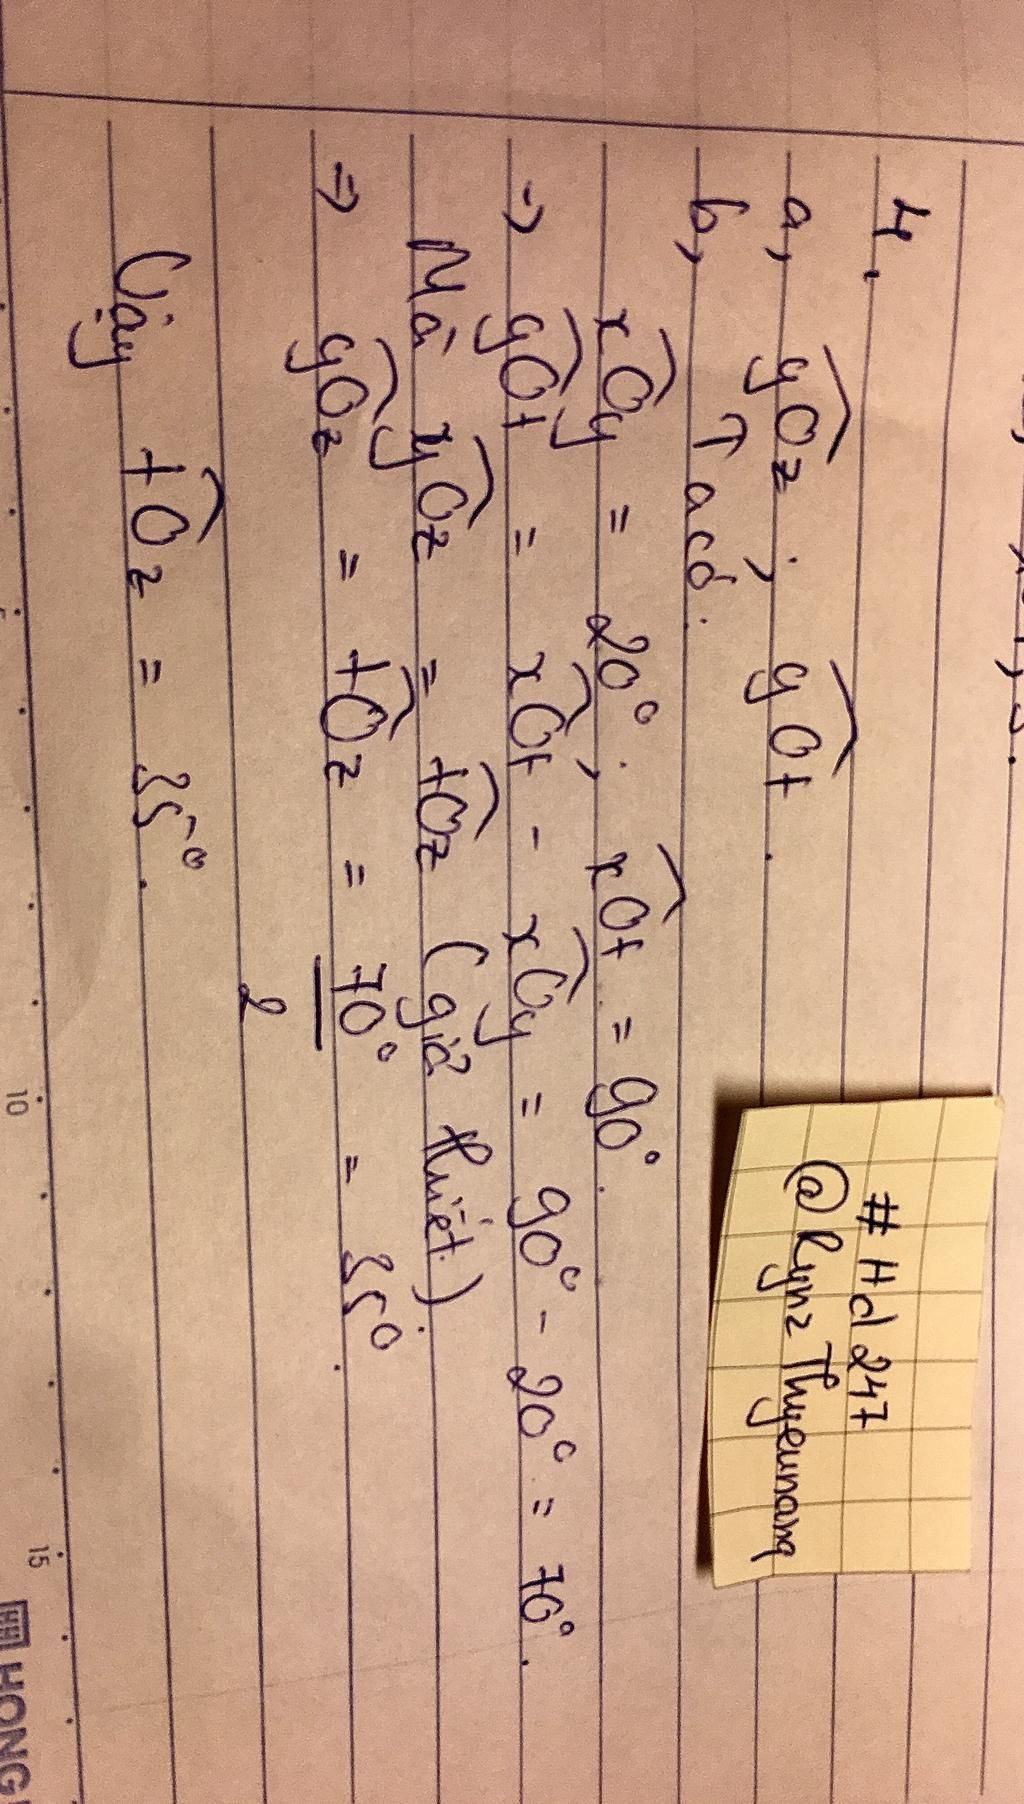 4.
a, yOz ; yOt.
b, Ta có:
xOy = 20°; xOt = 90°.
-> yOt = xOt - xOy = 90° - 20° = 70°.
Mà yOz = tOz (giả thiết).
=> yOz = tOz = 70°/2 = 35°.
Vậy tOz = 35°.
# Hd 247
@ Rynz Thyeunang
10
15
HONG